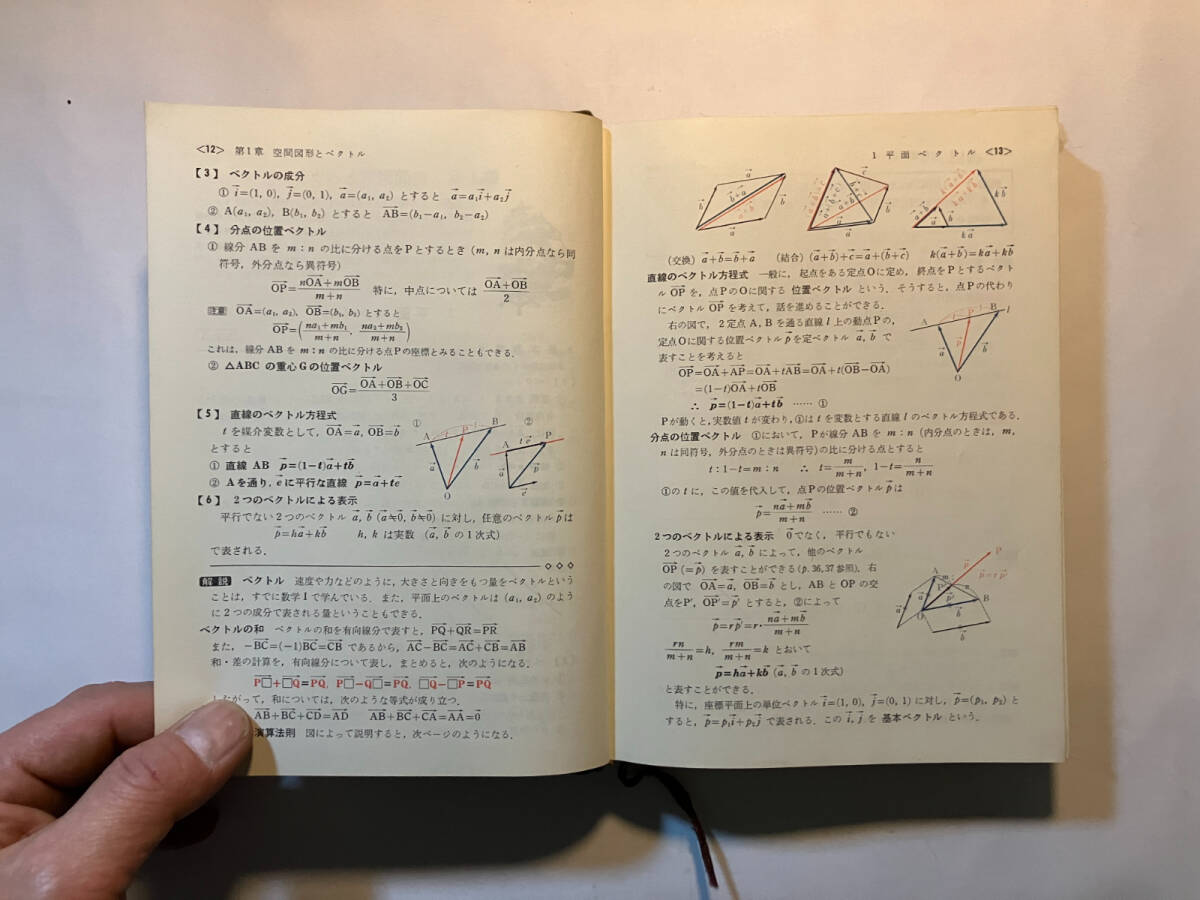 <12> 第1章 空間図形とベクトル
【3】 ベクトルの成分
① i⃗=(1, 0), j⃗=(0, 1), a⃗=(a₁, a₂) とすると a⃗=a₁i⃗+a₂j⃗
② A(a₁, a₂), B(b₁, b₂) とすると AB⃗=(b₁−a₁, b₂−a₂)
【4】 分点の位置ベクトル
① 線分 AB を m:n の比に分ける点をPとするとき (m, n は内分点なら同
符号, 外分点なら異符号)
OP⃗=(nOA⃗+mOB⃗)/(m+n) 特に, 中点については (OA⃗+OB⃗)/2
注意 OA⃗=(a₁, a₂), OB⃗=(b₁, b₂) とすると
OP⃗=((na₁+mb₁)/(m+n), (na₂+mb₂)/(m+n))
これは, 線分 AB を m:n の比に分ける点Pの座標とみることもできる.
② △ABC の重心Gの位置ベクトル
OG⃗=(OA⃗+OB⃗+OC⃗)/3
【5】 直線のベクトル方程式
t を媒介変数として, OA⃗=a⃗, OB⃗=b⃗
とすると
① 直線 AB p⃗=(1−t)a⃗+tb⃗
② Aを通り, e⃗に平行な直線 p⃗=a⃗+te⃗
① A P B a⃗ p⃗ b⃗ O
② A te⃗ P a⃗ p⃗ O e⃗
【6】 2つのベクトルによる表示
平行でない2つのベクトル a⃗, b⃗ (a⃗≠0⃗, b⃗≠0⃗) に対し, 任意のベクトルp⃗は
p⃗=ha⃗+kb⃗ h, k は実数 (a⃗, b⃗ の1次式)
で表される.
解説 ベクトル 速度や力などのように, 大きさと向きをもつ量をベクトルという
ことは, すでに数学Ⅰで学んでいる. また, 平面上のベクトルは (a₁, a₂) のよう
に2つの成分で表される量ということもできる.
ベクトルの和 ベクトルの和を有向線分で表すと, PQ⃗+QR⃗=PR⃗
また, −BC⃗=(−1)BC⃗=CB⃗ であるから, AC⃗−BC⃗=AC⃗+CB⃗=AB⃗
和・差の計算を, 有向線分について表し, まとめると, 次のようになる.
P□⃗+□Q⃗=PQ⃗, P□⃗−Q□⃗=PQ⃗, □Q⃗−□P⃗=PQ⃗
がって, 和については, 次のような等式が成り立つ.
AB⃗+BC⃗+CD⃗=AD⃗ AB⃗+BC⃗+CA⃗=AA⃗=0⃗
演算法則 図によって説明すると, 次ページのようになる.
1 平面ベクトル <13>
a⃗ b⃗ a⃗+b⃗ b⃗ a⃗
c⃗ b⃗ a⃗
a⃗+b⃗ b⃗ a⃗ kb⃗ ka⃗
(交換) a⃗+b⃗=b⃗+a⃗ (結合) (a⃗+b⃗)+c⃗=a⃗+(b⃗+c⃗) k(a⃗+b⃗)=ka⃗+kb⃗
直線のベクトル方程式 一般に, 起点をある定点Oに定め, 終点をPとするベクト
ル OP⃗ を, 点PのOに関する 位置ベクトル という. そうすると, 点Pの代わり
にベクトル OP⃗ を考えて, 話を進めることができる.
右の図で, 2定点 A, B を通る直線 l 上の動点Pの,
定点Oに関する位置ベクトルp⃗を定ベクトル a⃗, b⃗ で
表すことを考えると
A P B l a⃗ p⃗ b⃗ O
OP⃗=OA⃗+AP⃗=OA⃗+tAB⃗=OA⃗+t(OB⃗−OA⃗)
=(1−t)OA⃗+tOB⃗
∴ p⃗=(1−t)a⃗+tb⃗ …… ①
Pが動くと, 実数値 t が変わり, ①は t を変数とする直線 l のベクトル方程式である.
分点の位置ベクトル ①において, Pが線分 AB を m:n (内分点のときは, m,
n は同符号, 外分点のときは異符号)の比に分ける点とすると
t:1−t=m:n ∴ t=m/(m+n), 1−t=n/(m+n)
①の t に, この値を代入して, 点Pの位置ベクトルp⃗は
p⃗=(na⃗+mb⃗)/(m+n) …… ②
2つのベクトルによる表示 0⃗でなく, 平行でもない
2つのベクトル a⃗, b⃗ によって, 他のベクトル
OP⃗ (=p⃗) を表すことができる(p. 36, 37 参照). 右
の図で OA⃗=a⃗, OB⃗=b⃗ とし, AB と OP の交
点をP′, OP′⃗=p′⃗ とすると, ②によって
A m P P′ n B a⃗ b⃗ O p⃗=rp′⃗ b⃗
p⃗=rp′⃗=r・(na⃗+mb⃗)/(m+n)
rn/(m+n)=h, rm/(m+n)=k とおいて
p⃗=ha⃗+kb⃗ (a⃗, b⃗ の1次式)
と表すことができる.
特に, 座標平面上の単位ベクトル i⃗=(1, 0), j⃗=(0, 1) に対し, p⃗=(p₁, p₂) と
すると, p⃗=p₁i⃗+p₂j⃗ で表される. この i⃗, j⃗ を 基本ベクトル という.